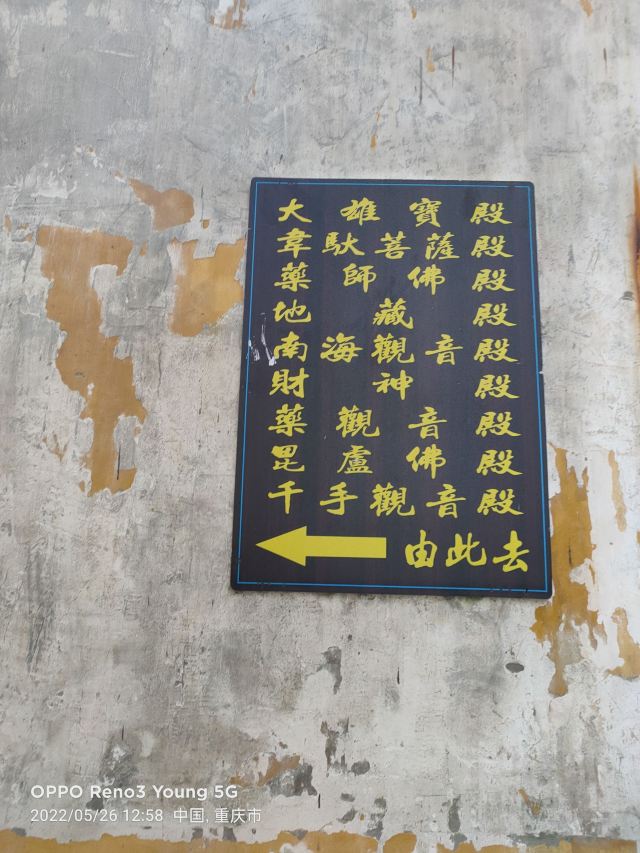 大雄寶殿
韋馱菩薩殿
藥師佛殿
地藏殿
南海觀音殿
財神殿
藥觀音殿
毘盧佛殿
千手觀音殿
由此去
OPPO Reno3 Young 5G
2022/05/26 12:58 中国, 重庆市